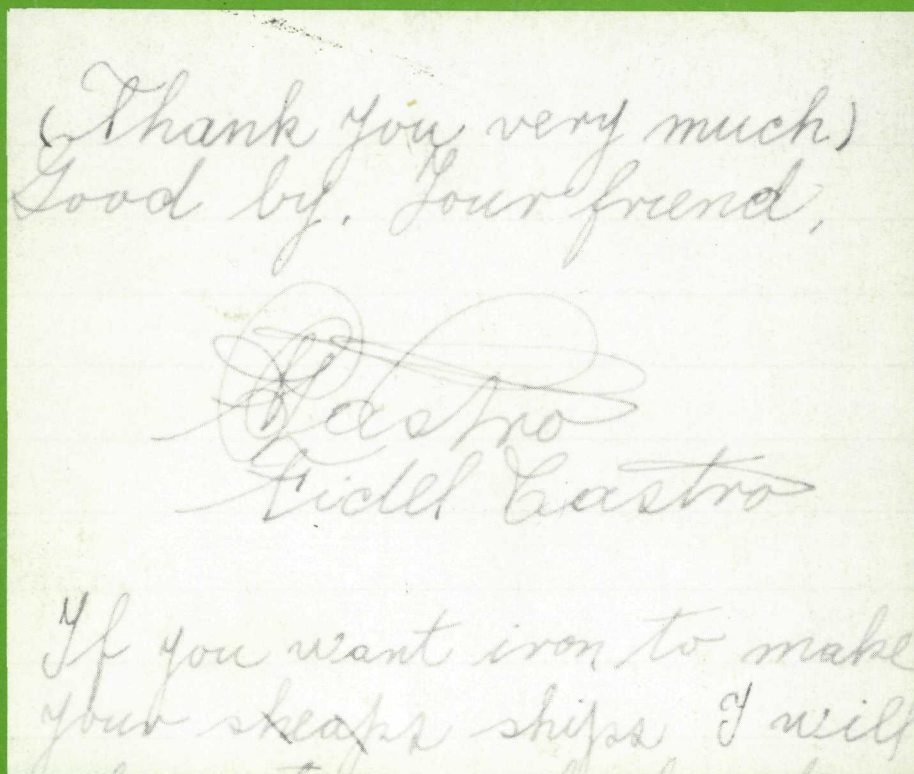 (Thank you very much)
Good by. Your friend,
Castro
Fidel Castro
If you want iron to make
your sheaps ships I will